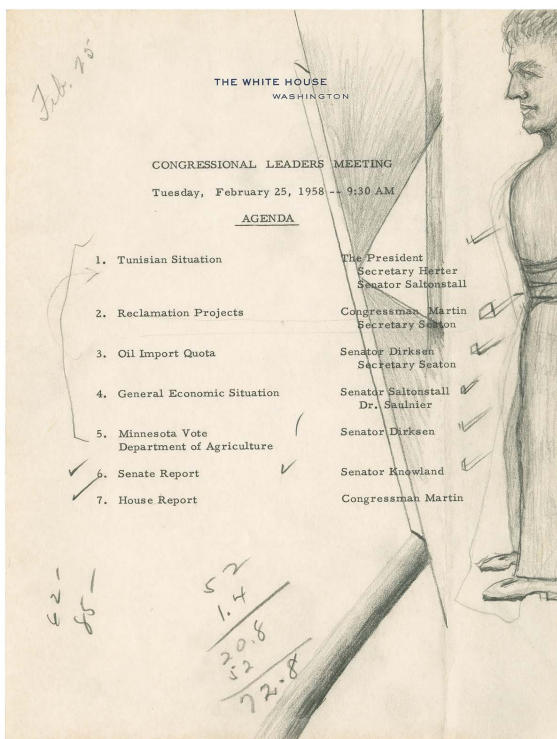 Feb. 25
THE WHITE HOUSE
WASHINGTON
CONGRESSIONAL LEADERS MEETING
Tuesday, February 25, 1958 -- 9:30 AM
AGENDA
1. Tunisian Situation The President
Secretary Herter
Senator Saltonstall
2. Reclamation Projects Congressman Martin
Secretary Seaton
3. Oil Import Quota Senator Dirksen
Secretary Seaton
4. General Economic Situation Senator Saltonstall
Dr. Saulnier
5. Minnesota Vote Senator Dirksen
Department of Agriculture
6. Senate Report Senator Knowland
7. House Report Congressman Martin
42-
85-
52
1.4
20.8
52
72.8